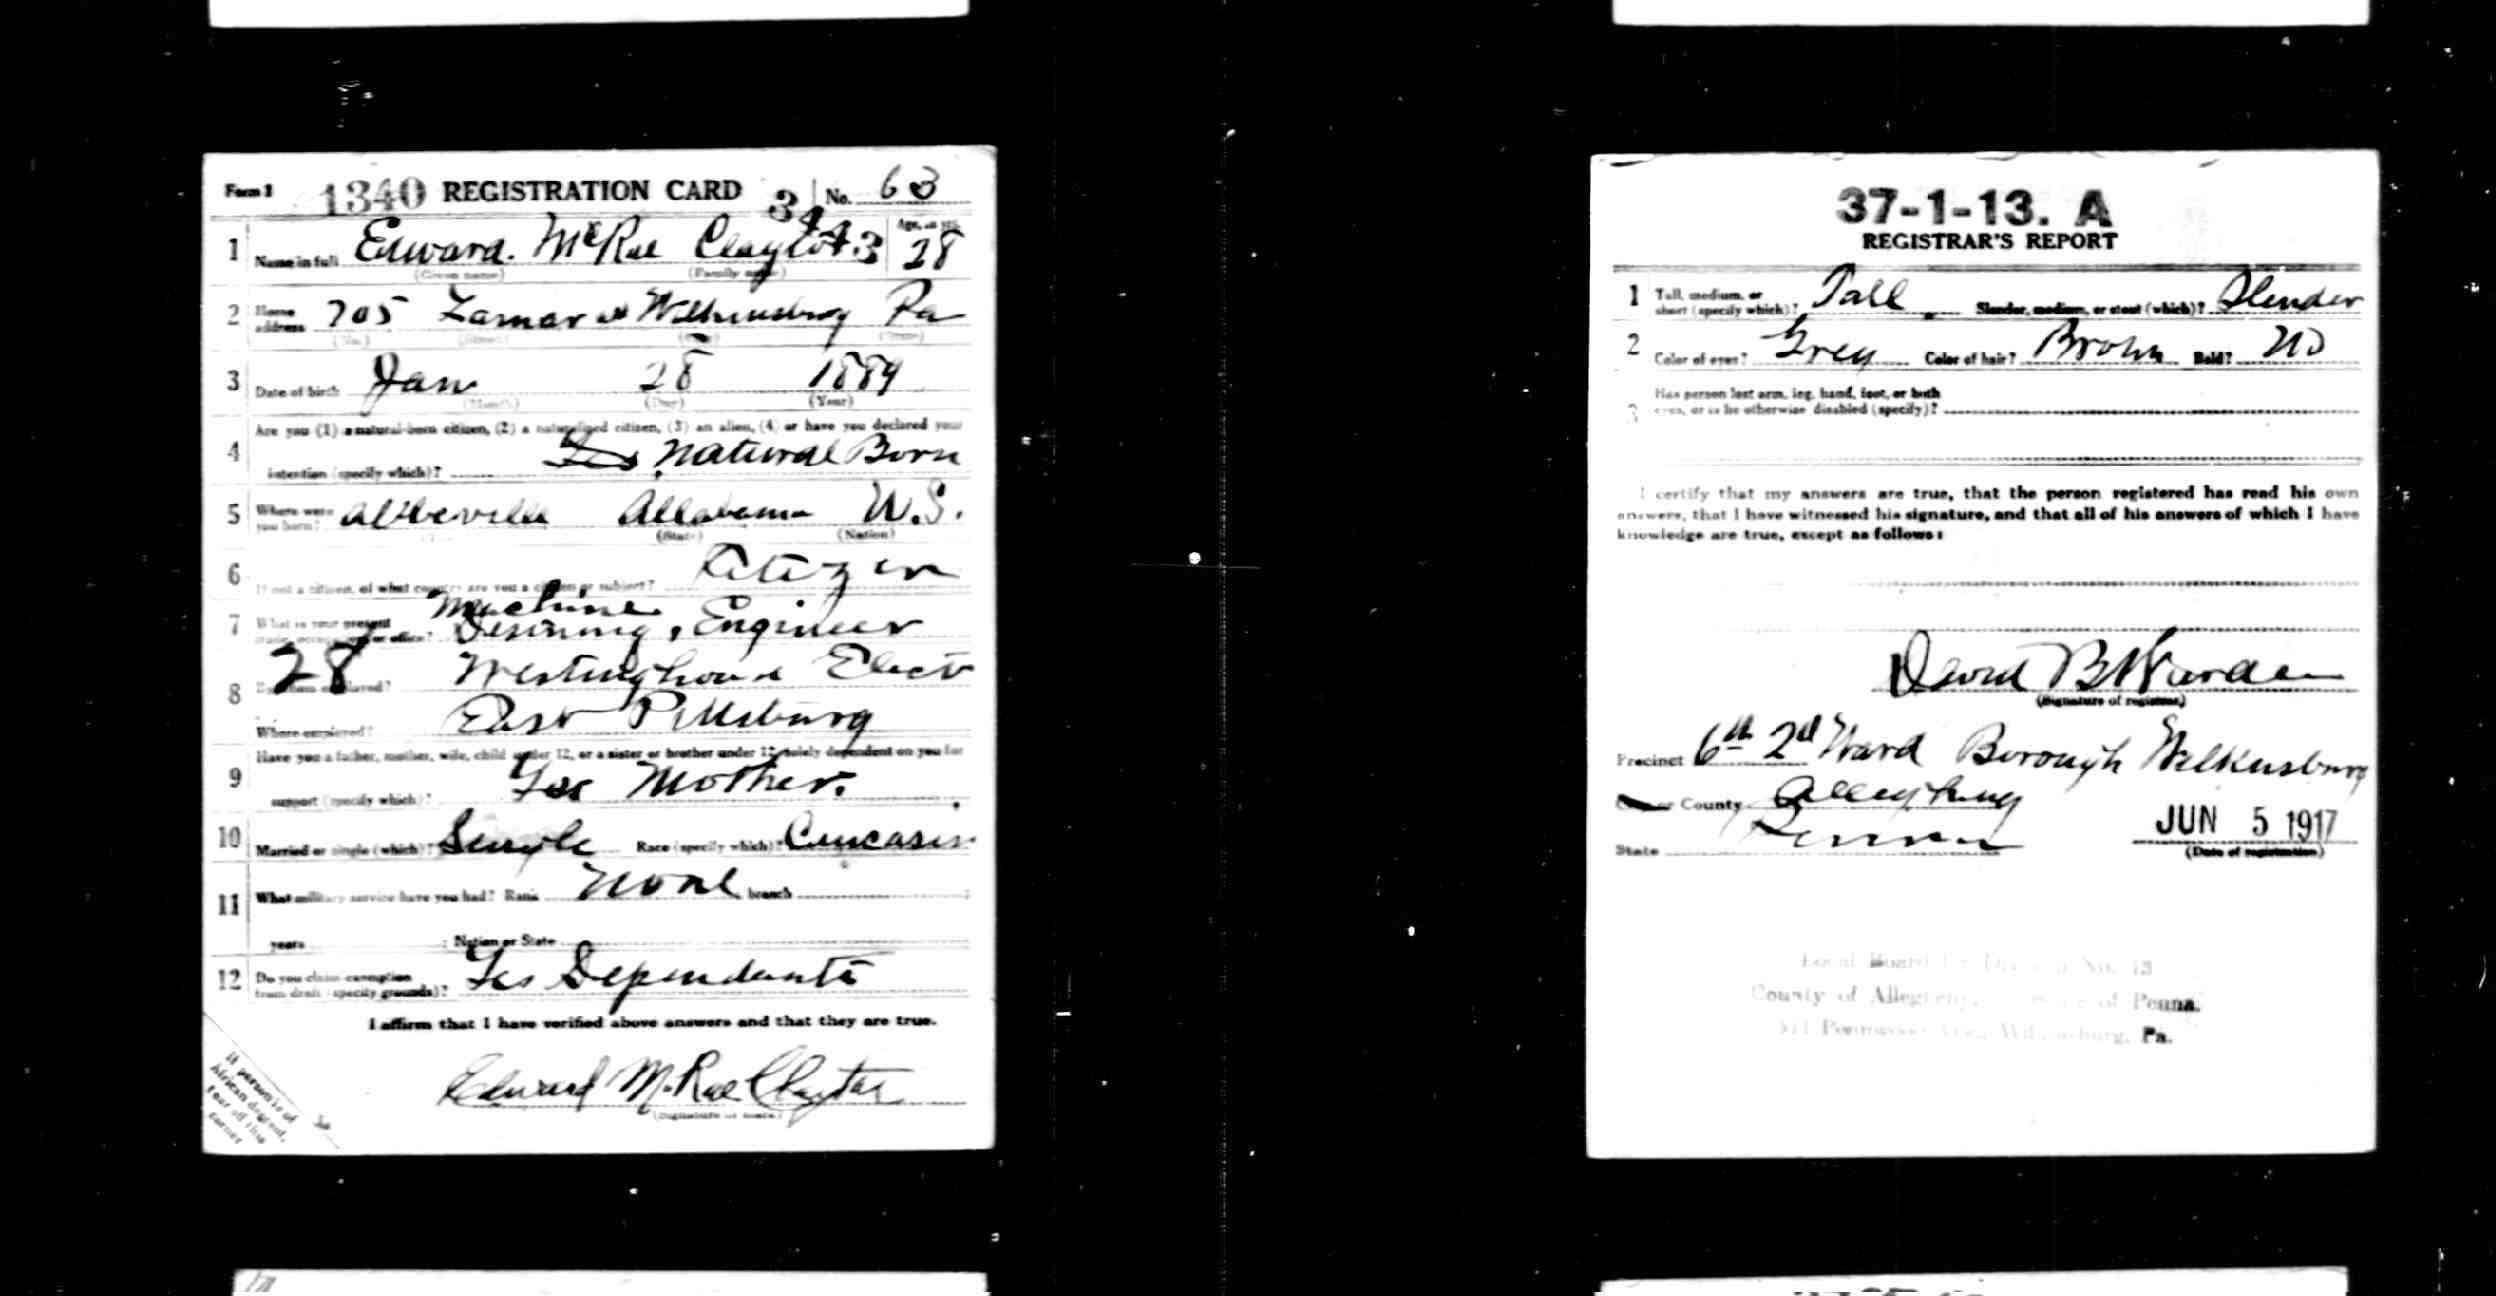 Form 1 1340 REGISTRATION CARD 34 No. 63
1 Name in full Edward. McRae Clayton 43 Age, in yrs. 28
(Given name) (Family name)
2 Home address 705 Lamar st Wilkinsburg Pa
(No.) (Street) (City) (State)
3 Date of birth Jan 28 1889
(Month) (Day) (Year)
4 Are you (1) a natural-born citizen, (2) a naturalized citizen, (3) an alien, (4) or have you declared your
intention (specify which)? Yes Natural Born
5 Where were you born? Abbeville Allabama U.S.
(State) (Nation)
6 If not a citizen, of what country are you a citizen or subject? Citizen
Machine
7 What is your present trade, occupation, or office? Desining, Engineer
28
8 By whom employed? Westinghouse Elect
Where employed? East Pittsburg
9 Have you a father, mother, wife, child under 12, or a sister or brother under 12, solely dependent on you for
support (specify which)? Yes Mother.
10 Married or single (which)? Single Race (specify which)? Caucasin
11 What military service have you had? Rank None branch
years ; Nation or State
12 Do you claim exemption from draft (specify grounds)? Yes Dependants
I affirm that I have verified above answers and that they are true.
Edward McRae Clayton
(Signature or mark)
If person is of
African descent,
tear off this
corner
37-1-13. A
REGISTRAR'S REPORT
1 Tall, medium, or short (specify which)? Tall Slender, medium, or stout (which)? Slender
2 Color of eyes? Grey Color of hair? Brown Bald? No
3 Has person lost arm, leg, hand, foot, or both
eyes, or is he otherwise disabled (specify)?
I certify that my answers are true, that the person registered has read his own
answers, that I have witnessed his signature, and that all of his answers of which I have
knowledge are true, except as follows:
David B Warden
(Signature of registrar)
Precinct 6th 2d Ward Borough Wilkinsburg
City or County Allegheny
State Penna
JUN 5 1917
(Date of registration)
Local Board for Division No. 13
County of Allegheny, State of Penna.
Wilkinsburg, Pa.